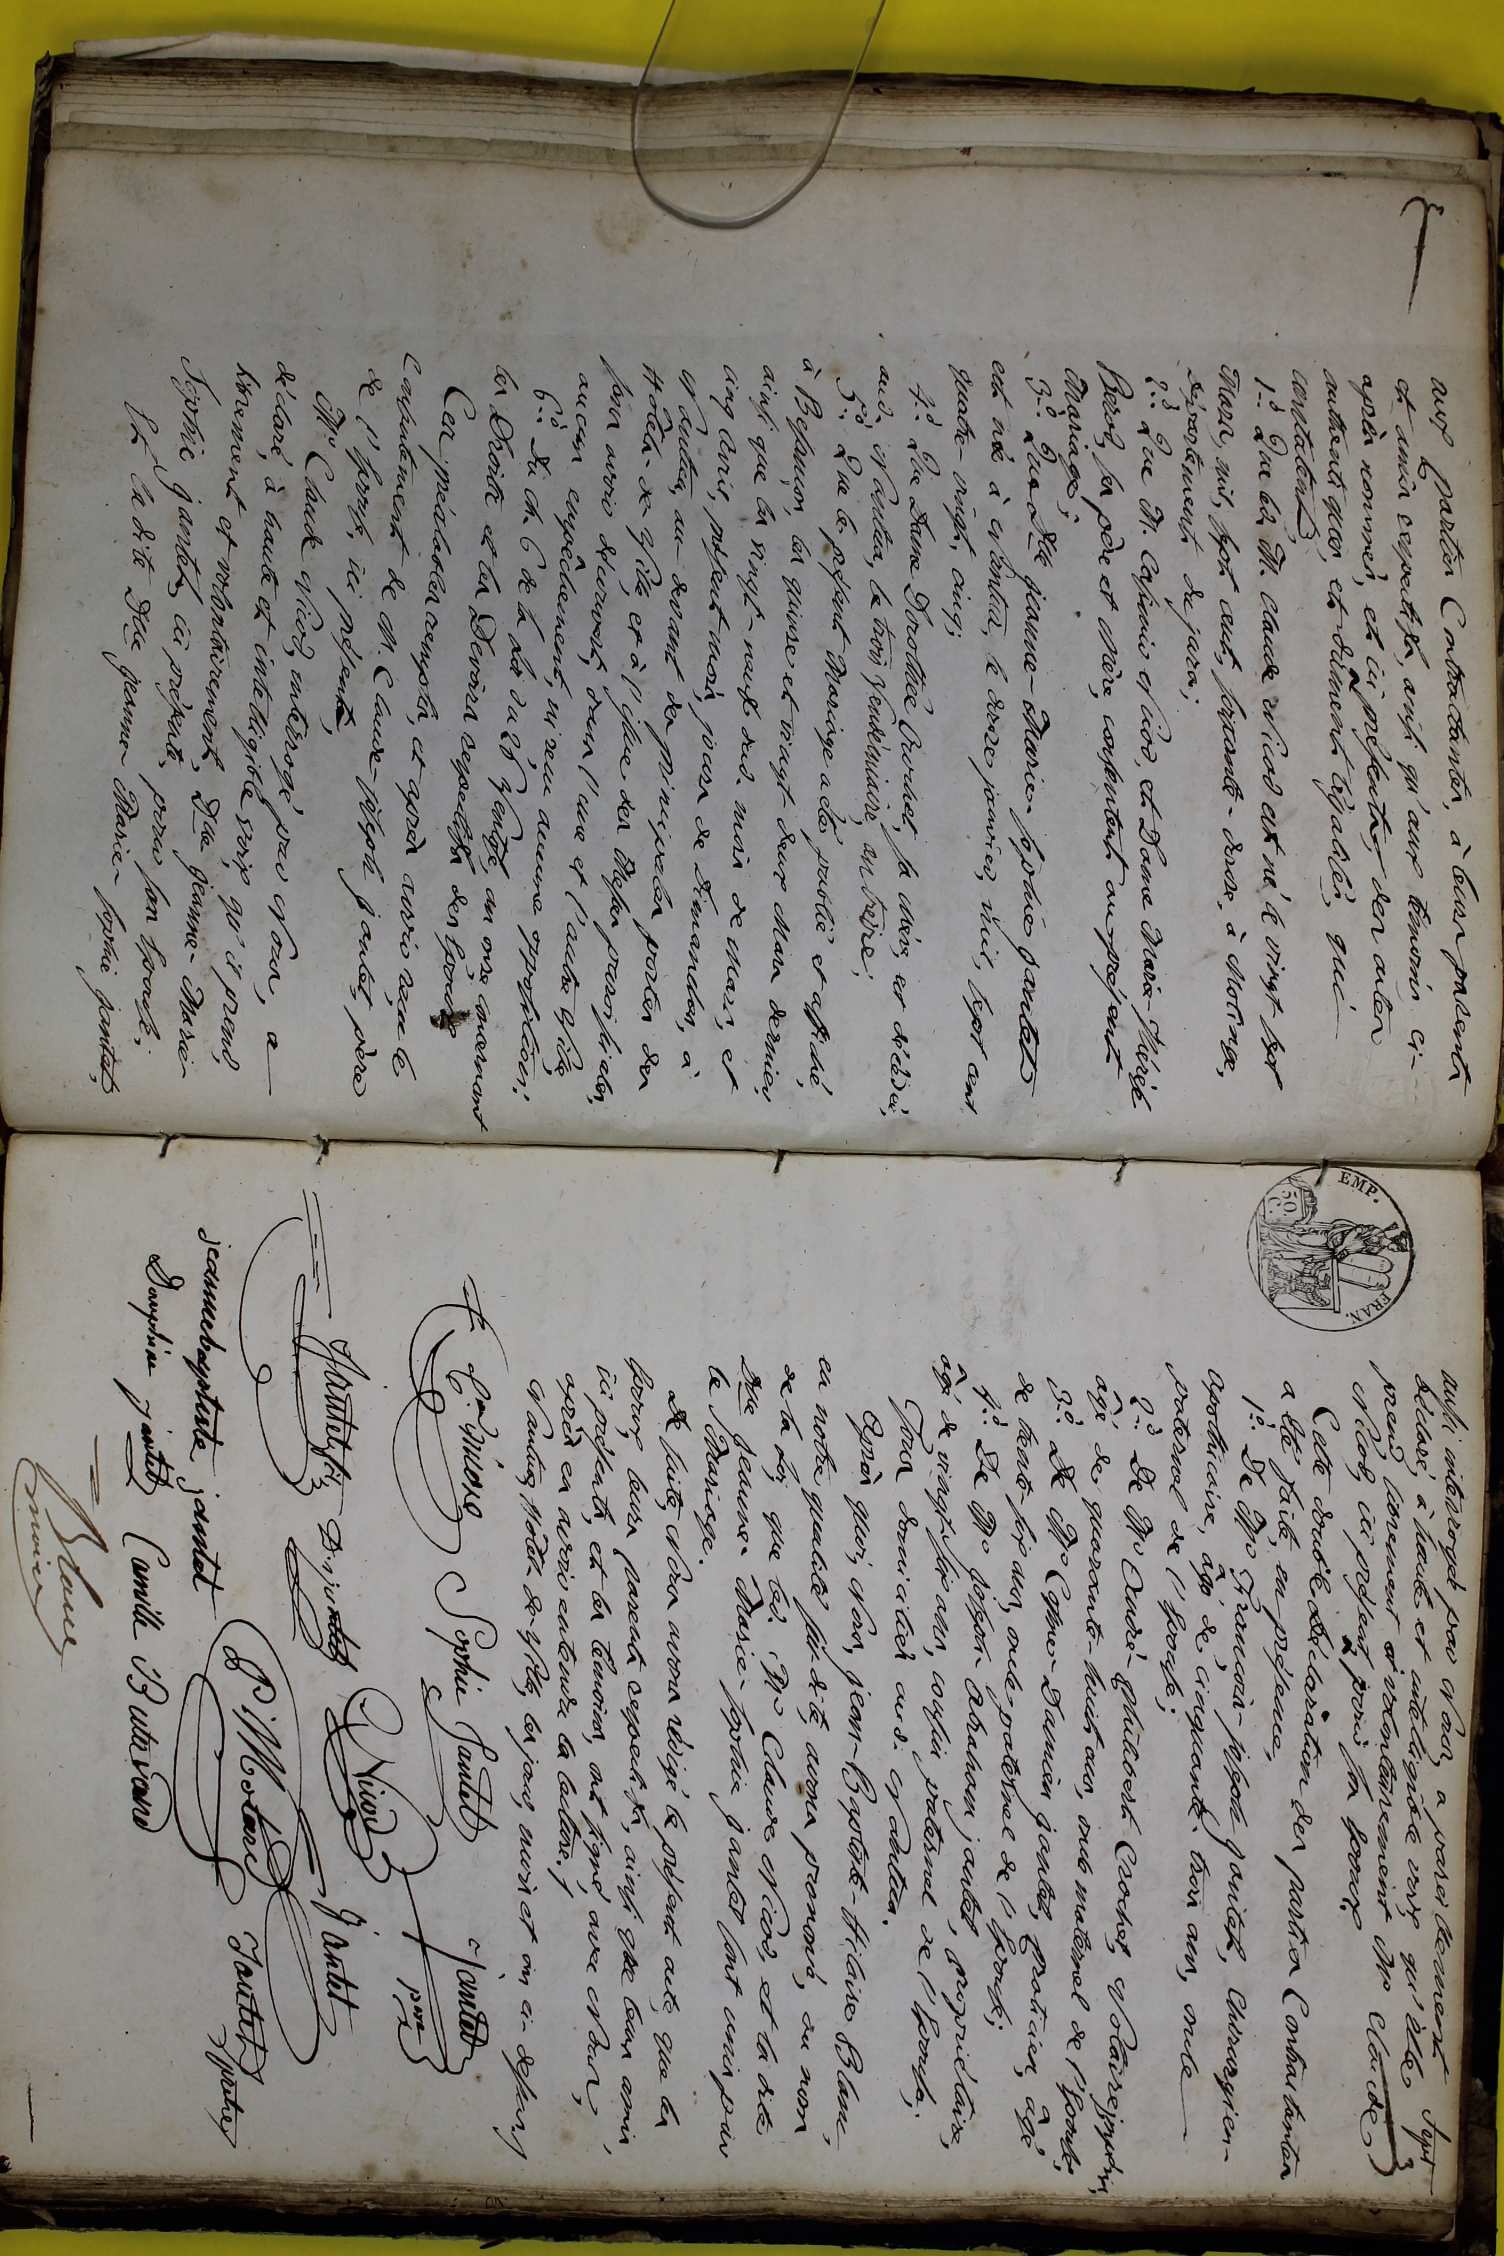 aux parties Contractantes, à leurs parents
et amis respectifs, ainsi qu'aux témoins ci-
après nommés, et ici présents, des actes
authentiques, et dûment légalisés, qui
constatent,
1.º Que led. M. Claude Nicod est né le vingt-sept
Mars, mil, sept cent, soixante-douze, à Molinge,
département du jura;
2.º Que M. Nicod, et Dame Marie-Thérèse
Perrod, ses père et mère, consentent au présent
Mariage;
3.º Que Dlle jeanne-Marie-sophie jantet
est née à Nantua, le douze janvier, mil, sept cent
quatre-vingt, cinq;
4.º Que Dame Drothée Crochet, sa mère, est décédée,
aud. Nantua, le trois Vendémiaire, an treize;
5.º Que le présent Mariage a été publié et affiché,
à Besançon, les quinze et vingt-deux Mars dernier,
ainsi que les vingt-neuf dud. mois de mars, et
cinq avril, présent mois, jours de Dimanches, à
Nantua, au-devant des principales portes des
Hôtels-de-Ville, et à l'issue des Messes paroissiales,
sans avoir découvert, dans l'une et l'autre Ville,
aucun empêchement, ni reçu aucune opposition;
6.º Du ch. 6 de la Loi du 26 Ventôse, an onze concernant
les Droits et les Devoirs respectifs des Epoux
Ces préalables remplis, et après avoir reçu le
consentement de M. Claude-joseph jantet, père
de l'Epouse, ici présent,
Mr. Claude Nicod, interrogé par Nous, a
déclaré, à haute et intelligible voix, qu'il prend,
librement et volontairement, Dlle jeanne-Marie-
Sophie jantet, ici présente, pour son Epouse;
Et ladite Dlle jeanne-Marie-sophie jantet,
EMP. FRAN.
50 C.
Sept
aussi interrogée par Nous, a pareillement
déclaré, à haute et intelligible voix, qu'elle
prend, librement et volontairement Mr. Claude
Nicod, ici présent, pour son Epoux.
Cette double Déclaration des parties Contractantes
a été faite, en présence,
1.º De Mr. François-joseph jantet, chirurgien-
apothicaire, âgé de cinquante-trois ans, oncle
paternel de l'Epouse;
2.º De Mr. André-philibert Crochet, Notaire
âgé de quarante-huit ans, oncle maternel de l'Epouse;
3.º De Mr. Côme-Damien jantet, praticien, âgé
de trente-six ans, oncle paternel de l'Epouse;
4.º De Mr. joseph-Abraham jantet, propriétaire,
âgé de vingt-six ans, cousin paternel de l'Epouse;
Tous domiciliés aud. Nantua.
Après quoi, Nous, jean-Baptiste-Hilaire Blanc,
en notre qualité sus-dite, avons prononcé, au nom
de la Loi, que led. Mr. Claude Nicod, et la dite
Dlle jeanne-Marie-sophie jantet sont unis par
le Mariage.
De suite, Nous avons rédigé le présent acte, que les
Epoux, leurs parents respectifs, ainsi que leurs amis,
ici présents, et les témoins, ont signé, avec Nous,
après en avoir entendu la lecture;
Nantua, Hôtel-de-Ville, les jour, mois et an ci-dessus
Cde. Nicod Sophie Jantet Jantet
pere
Jantet fils D. jantet Nicod Jantet
jeannebaptiste jantet Jantet prêtre
Dauphine jantet Camille Butavand
Blanc
maire